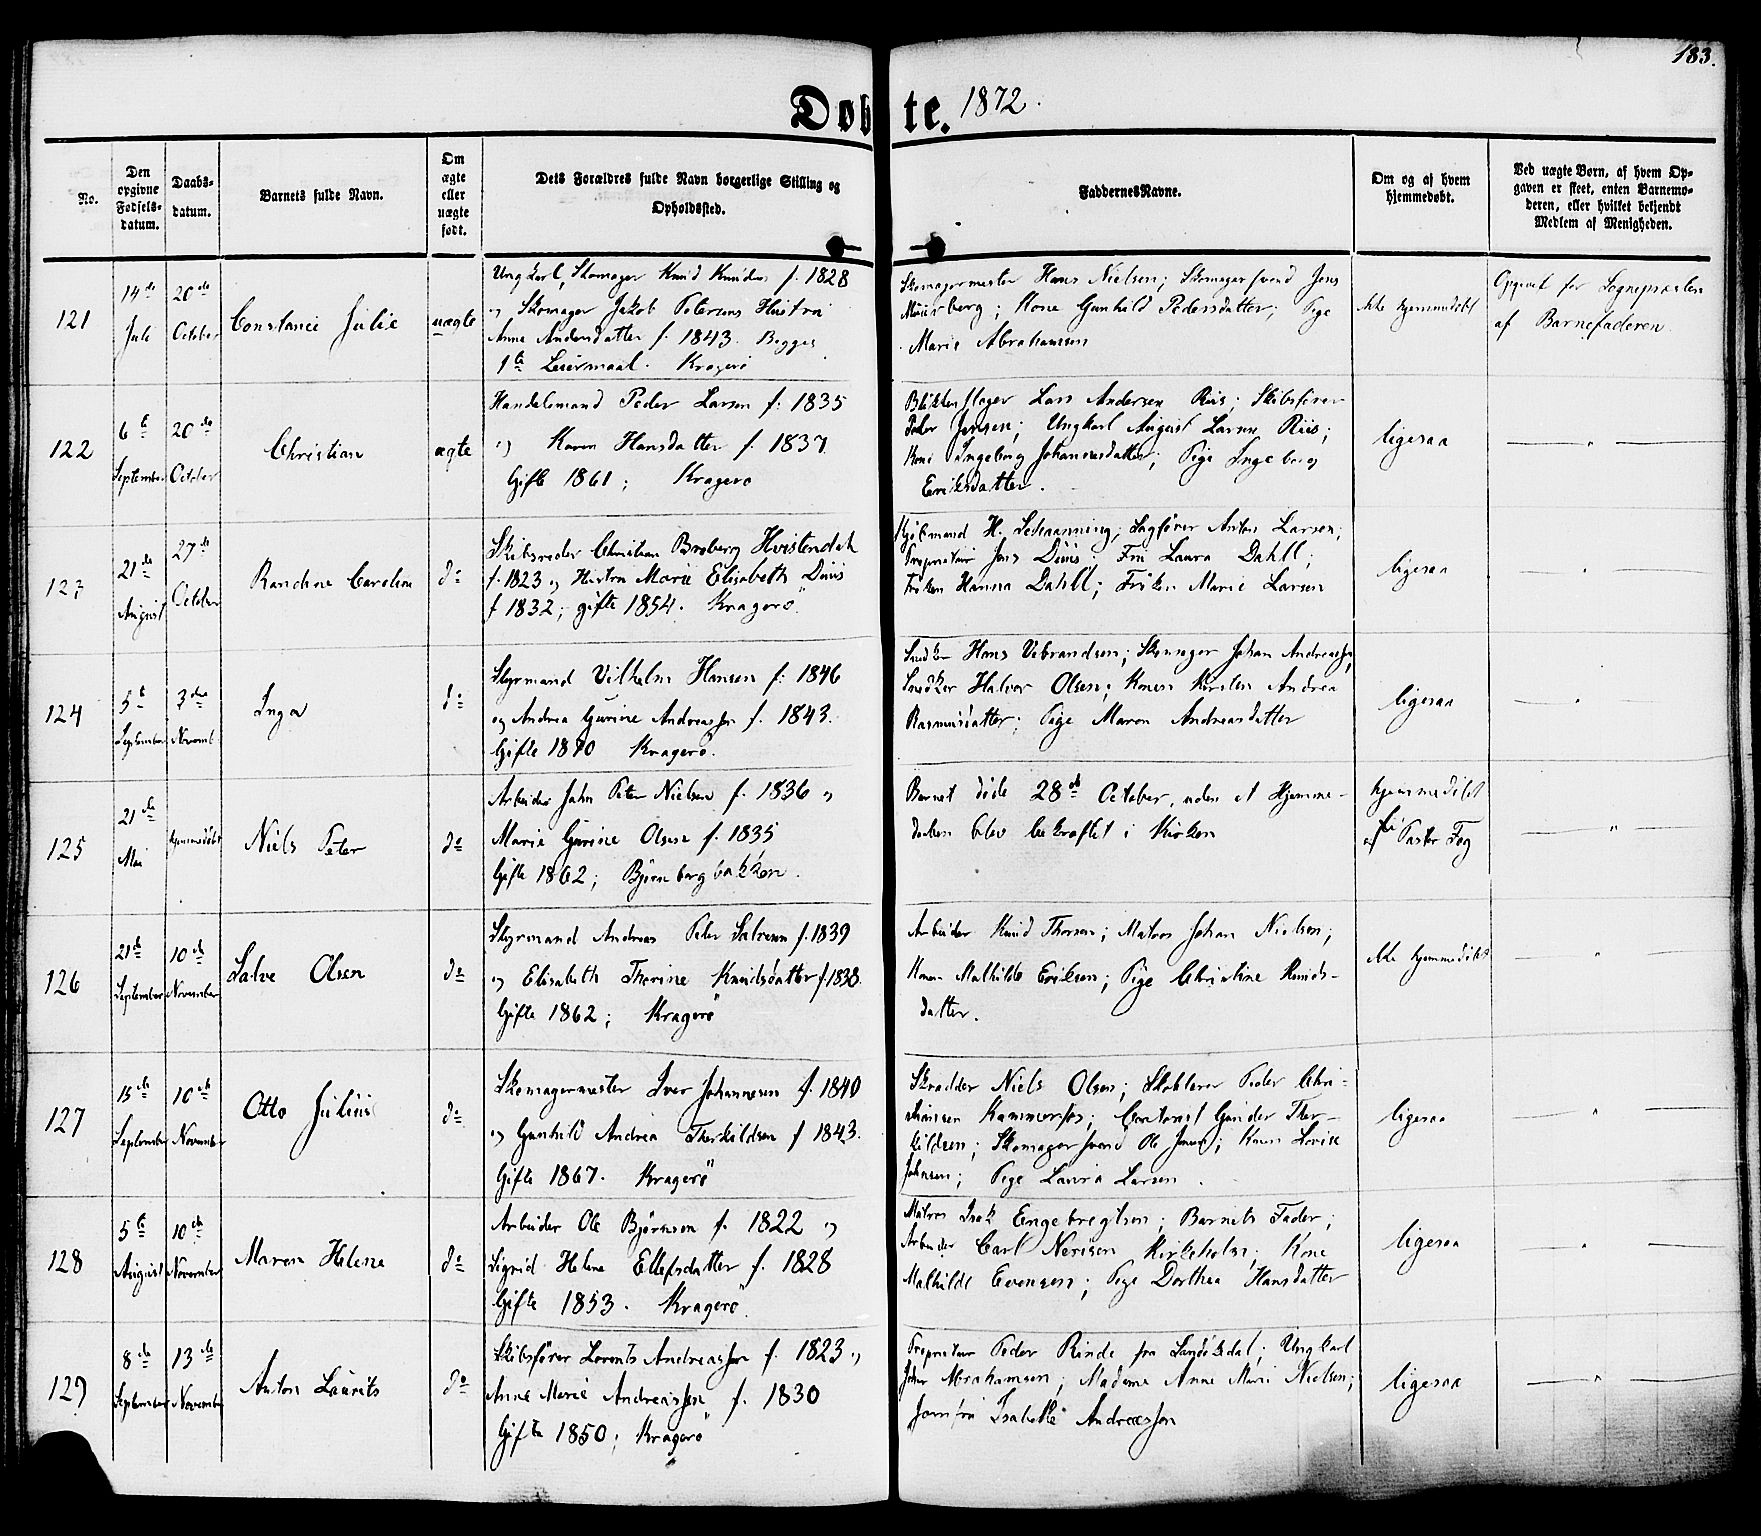 183.
Døbte. 1872.
No.
Den opgivne Fødsels-datum.
Daabs-datum.
Barnets fulde Navn.
Om ægte eller uægte født.
Dets Forældres fulde Navn borgerlige Stilling og Opholdssted.
Faddernes Navne.
Om og af hvem hjemmedøbt.
Ved uægte Børn, af hvem Op-
gaven er skeet, enten Barnemo-
deren, eller hvilket bekjendt
Medlem af Menigheden.
121
14de Juli
20de October
Constance Julie
uægte
Ungkarl, Skomager Knud Knudsen f. 1828
og Skomager Jakob Petersens Hustru
Anne Andersdatter f. 1843. Begges
1te Leiermaal. Kragerö
Skomagermester Hans Nielsen; Skomagersvend Jens
Kone Gunhild Pedersdatter; Pige
Marie Abrahamsen
Ikke hjemmedöbt
Opgivet for Sognepræsten
af Barnefaderen.
122
6te September
20de October
Christian
ægte
Handelsmand Peder Larsen f. 1835
og Karen Hansdatter f. 1837.
Gifte 1861; Kragerö
Blikkenslager Lars Andersen Riis; Skibsförer
Peder Jensen; Ungkarl August Larsen Riis;
Kone Ingeborg Johannesdatter; Pige Ingeborg
Eriksdatter.
ligesaa
— " —
123
21de August
27de October
Randine Caroline
do
Skibsreder Christian Broberg Hvistendahl
f. 1823 og Hustru Marie Elisabeth Duus
f 1832; gifte 1854. Kragerö.
Kjöbmand H. Schanning; Sagförer Anton Larsen;
Proprietair Jens Duus; Fru Laura Dahll;
Fröken Hanna Dahll; Fröken Marie Larsen
ligesaa
— " —
124
5te September
3die Novemb
Inga
do
Styrmand Vilhelm Hansen f. 1846
og Andrea Gurine Andreassen f. 1843.
Gifte 1870 Kragerö.
Snedker Hans Vebrandsen; Skomager Johan Andreassen,
Snedker Halvor Olsen; Konen Kirsten Andrea
Rasmusdatter; Pige Maren Andreasdatter
ligesaa
— " —
125
21de Mai
hjemmedöbt
Niels Peter
do
Arbeider John Peter Nielsen f. 1836 og
Marie Gurine Olsen f. 1835
Gifte 1862; Björnsbergbakken.
Barnet döde 28de October, uden at Hjemme-
daaben blev bekræftet i Kirken
hjemmedöbt
af Pastor Fog
— " —
126
21de September
10de November
Salve Olsen
do
Styrmand Andreas Peter Salvesen f. 1839
og Elisabeth Therine Knudsdatter f 1838.
Gifte 1862; Kragerö
Arbeider Knud Thorsen; Matros Johan Nielsen;
Konen Mathilde Eriksen; Pige Christine Knuds-
datter.
ikke hjemmedöbt
— " —
127
15de September
10de November
Otto Julius
do
Skomagermester Iver Johannesen f. 1840
og Gunhild Andrea Therkildsen f 1843.
Gifte 1867. Kragerö
Skrædder Niels Olsen; Skoblerer Peder Chri-
stiansen Kammerfos; Constant Gunder Ther-
kildsen; Skomagersvend Ole Jensen; Konen Lovise
Johnsen; Pige Laura Larsen.
ligesaa
— " —
128
5te August
10de November
Maren Helene
do
Arbeider Ole Björnsen f. 1822 og
Sigrid Helene Ellefsdatter f. 1828
Gifte 1853. Kragerö.
Matros Isak Engebregtsen; Barnets Fader;
Arbeider Carl Nerisen Kirkeholm; Kone
Mathilde Evensen; Pige Dorthea Hansdatter
ligesaa
— " —
129
8de September
13de November
Anton Laurits
do
Skibsförer Lorents Andreassen f. 1823 og
Anne Marie Andreassen f. 1830
Gifte 1850; Kragerö
Proprietær Peder Rinde fra Sandökedal; Ungkarl
Johan Abrahamsen; Madame Anne Marie Nielsen;
Jomfru Isabelle Andreassen
ligesaa
— " —